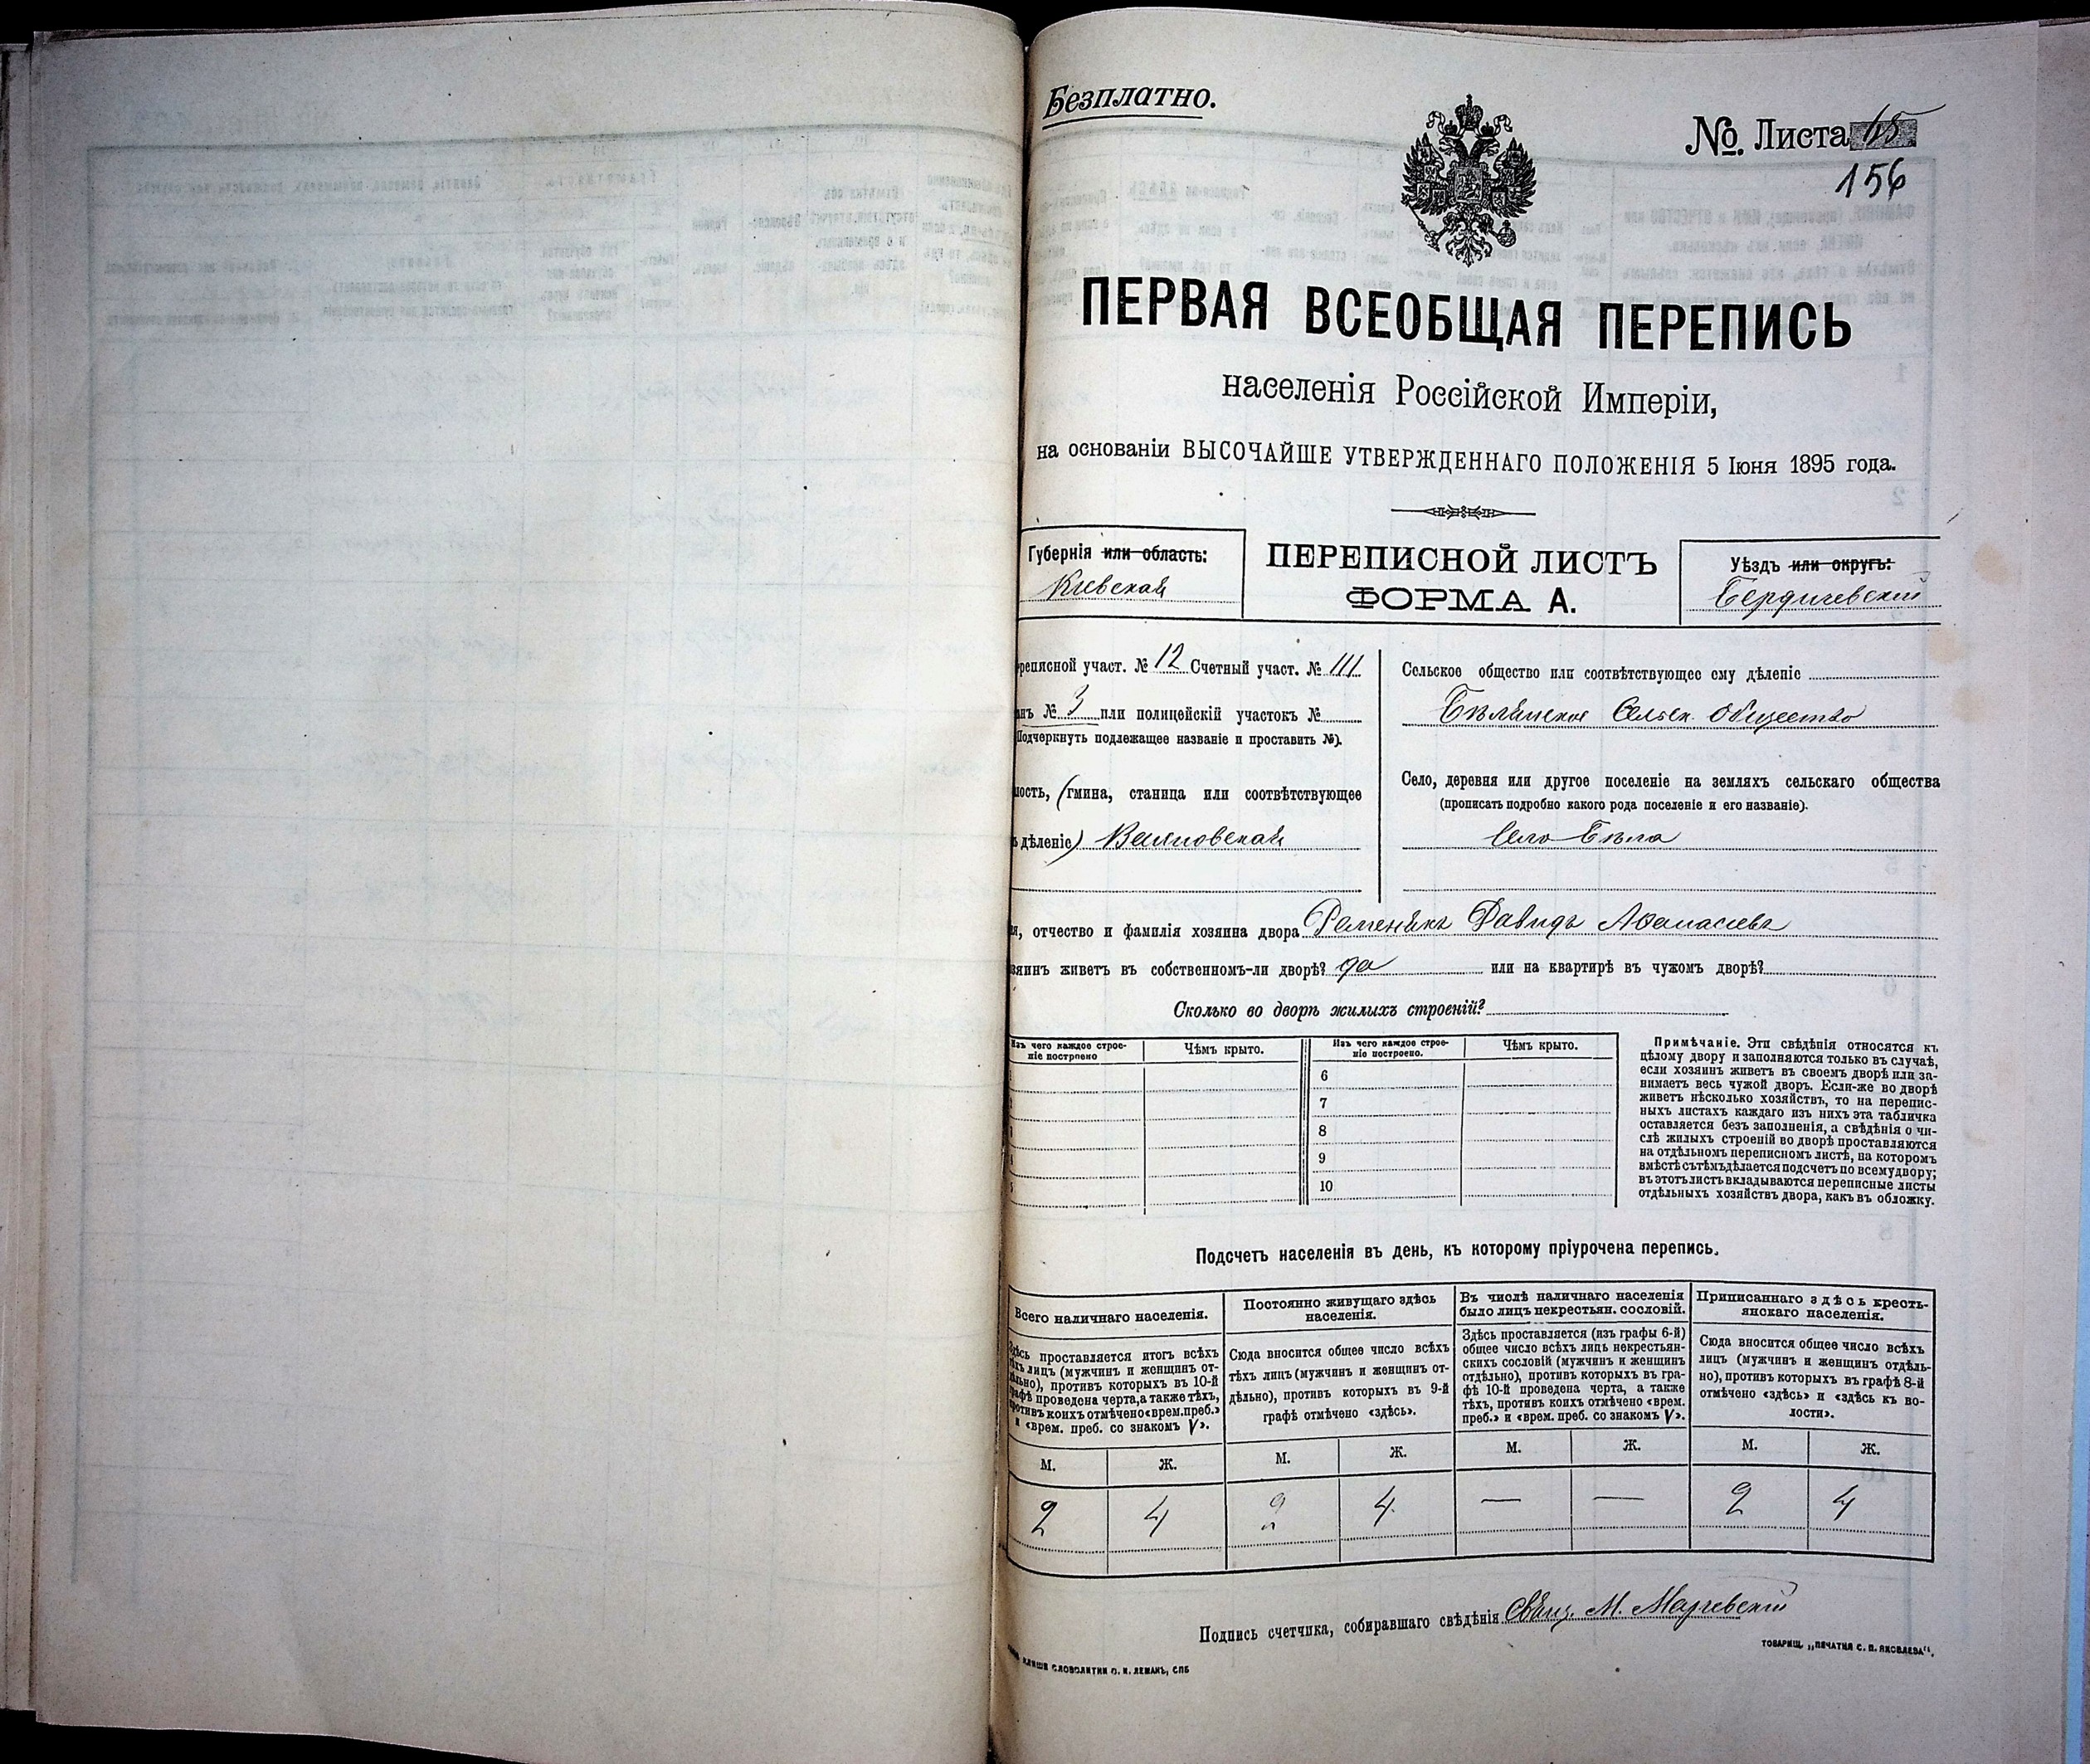 Безплатно.
№. Листа
156
ПЕРВАЯ ВСЕОБЩАЯ ПЕРЕПИСЬ
населенія Россійской Имперіи,
на основаніи ВЫСОЧАЙШЕ УТВЕРЖДЕННАГО ПОЛОЖЕНІЯ 5 Іюня 1895 года.
Губернія или область:
Кіевская
ПЕРЕПИСНОЙ ЛИСТЪ
ФОРМА А.
Уѣздъ или округъ:
Бердичевскій
реписной участ. № 12 Счетный участ. № 111
анъ № 3 или полицейскій участокъ №
(Подчеркнуть подлежащее названіе и проставить №).
ность, (гмина, станица или соотвѣтствующее
ъ дѣленіе)
Сельское общество или соотвѣтствующее ему дѣленіе
Бѣлянское Сельск. Общество
Село, деревня или другое поселеніе на земляхъ сельскаго общества
(прописать подробно какого рода поселеніе и его названіе).
Село Бѣла
я, отчество и фамилія хозяина двора Давидъ Аѳанасіевъ
зяинъ живетъ въ собственномъ-ли дворѣ? да или на квартирѣ въ чужомъ дворѣ?
Сколько во дворѣ жилыхъ строеній?
Изъ чего каждое строе-
ніе построено
Чѣмъ крыто.
Изъ чего каждое строе-
ніе построено.
Чѣмъ крыто.
6
7
8
9
10
Примѣчаніе. Эти свѣдѣнія относятся къ
цѣлому двору и заполняются только въ случаѣ,
если хозяинъ живетъ въ своемъ дворѣ или за-
нимаетъ весь чужой дворъ. Если-же во дворѣ
живетъ нѣсколько хозяйствъ, то на перепис-
ныхъ листахъ каждаго изъ нихъ эта табличка
оставляется безъ заполненія, а свѣдѣнія о чи-
слѣ жилыхъ строеній во дворѣ проставляются
на отдѣльномъ переписномъ листѣ, на которомъ
вмѣстѣ съ тѣмъ дѣлается подсчетъ по всему двору;
въ этотъ листъ вкладываются переписные листы
отдѣльныхъ хозяйствъ двора, какъ въ обложку.
Подсчетъ населенія въ день, къ которому пріурочена перепись.
Всего наличнаго населенія.
Здѣсь проставляется итогъ всѣхъ
тѣхъ лицъ (мужчинъ и женщинъ от-
дѣльно), противъ которыхъ въ 10-й
графѣ проведена черта, а также тѣхъ,
противъ коихъ отмѣчено «врем. преб.»
и «врем. преб. со знакомъ V».
Постоянно живущаго здѣсь
населенія.
Сюда вносится общее число всѣхъ
тѣхъ лицъ (мужчинъ и женщинъ от-
дѣльно), противъ которыхъ въ 9-й
графѣ отмѣчено «здѣсь».
Въ числѣ наличнаго населенія
было лицъ некрестьян. сословій.
Здѣсь проставляется (изъ графы 6-й)
общее число всѣхъ лицъ некрестьян-
скихъ сословій (мужчинъ и женщинъ
отдѣльно), противъ которыхъ въ гра-
фѣ 10-й проведена черта, а также
тѣхъ, противъ коихъ отмѣчено «врем.
преб.» и «врем. преб. со знакомъ V».
Приписаннаго здѣсь кресть-
янскаго населенія.
Сюда вносится общее число всѣхъ
лицъ (мужчинъ и женщинъ отдѣль-
но), противъ которыхъ въ графѣ 8-й
отмѣчено «здѣсь» и «здѣсь къ во-
лости».
М. Ж. М. Ж. М. Ж. М. Ж.
2 4 2 4 — — 2 4
Подпись счетчика, собиравшаго свѣдѣнія Свящ. М.
СЛОВОЛИТНИ О. И. ЛЕМАНЪ, СПБ
ТОВАРИЩ. „ПЕЧАТНЯ С. П. ЯКОВЛЕВА“.